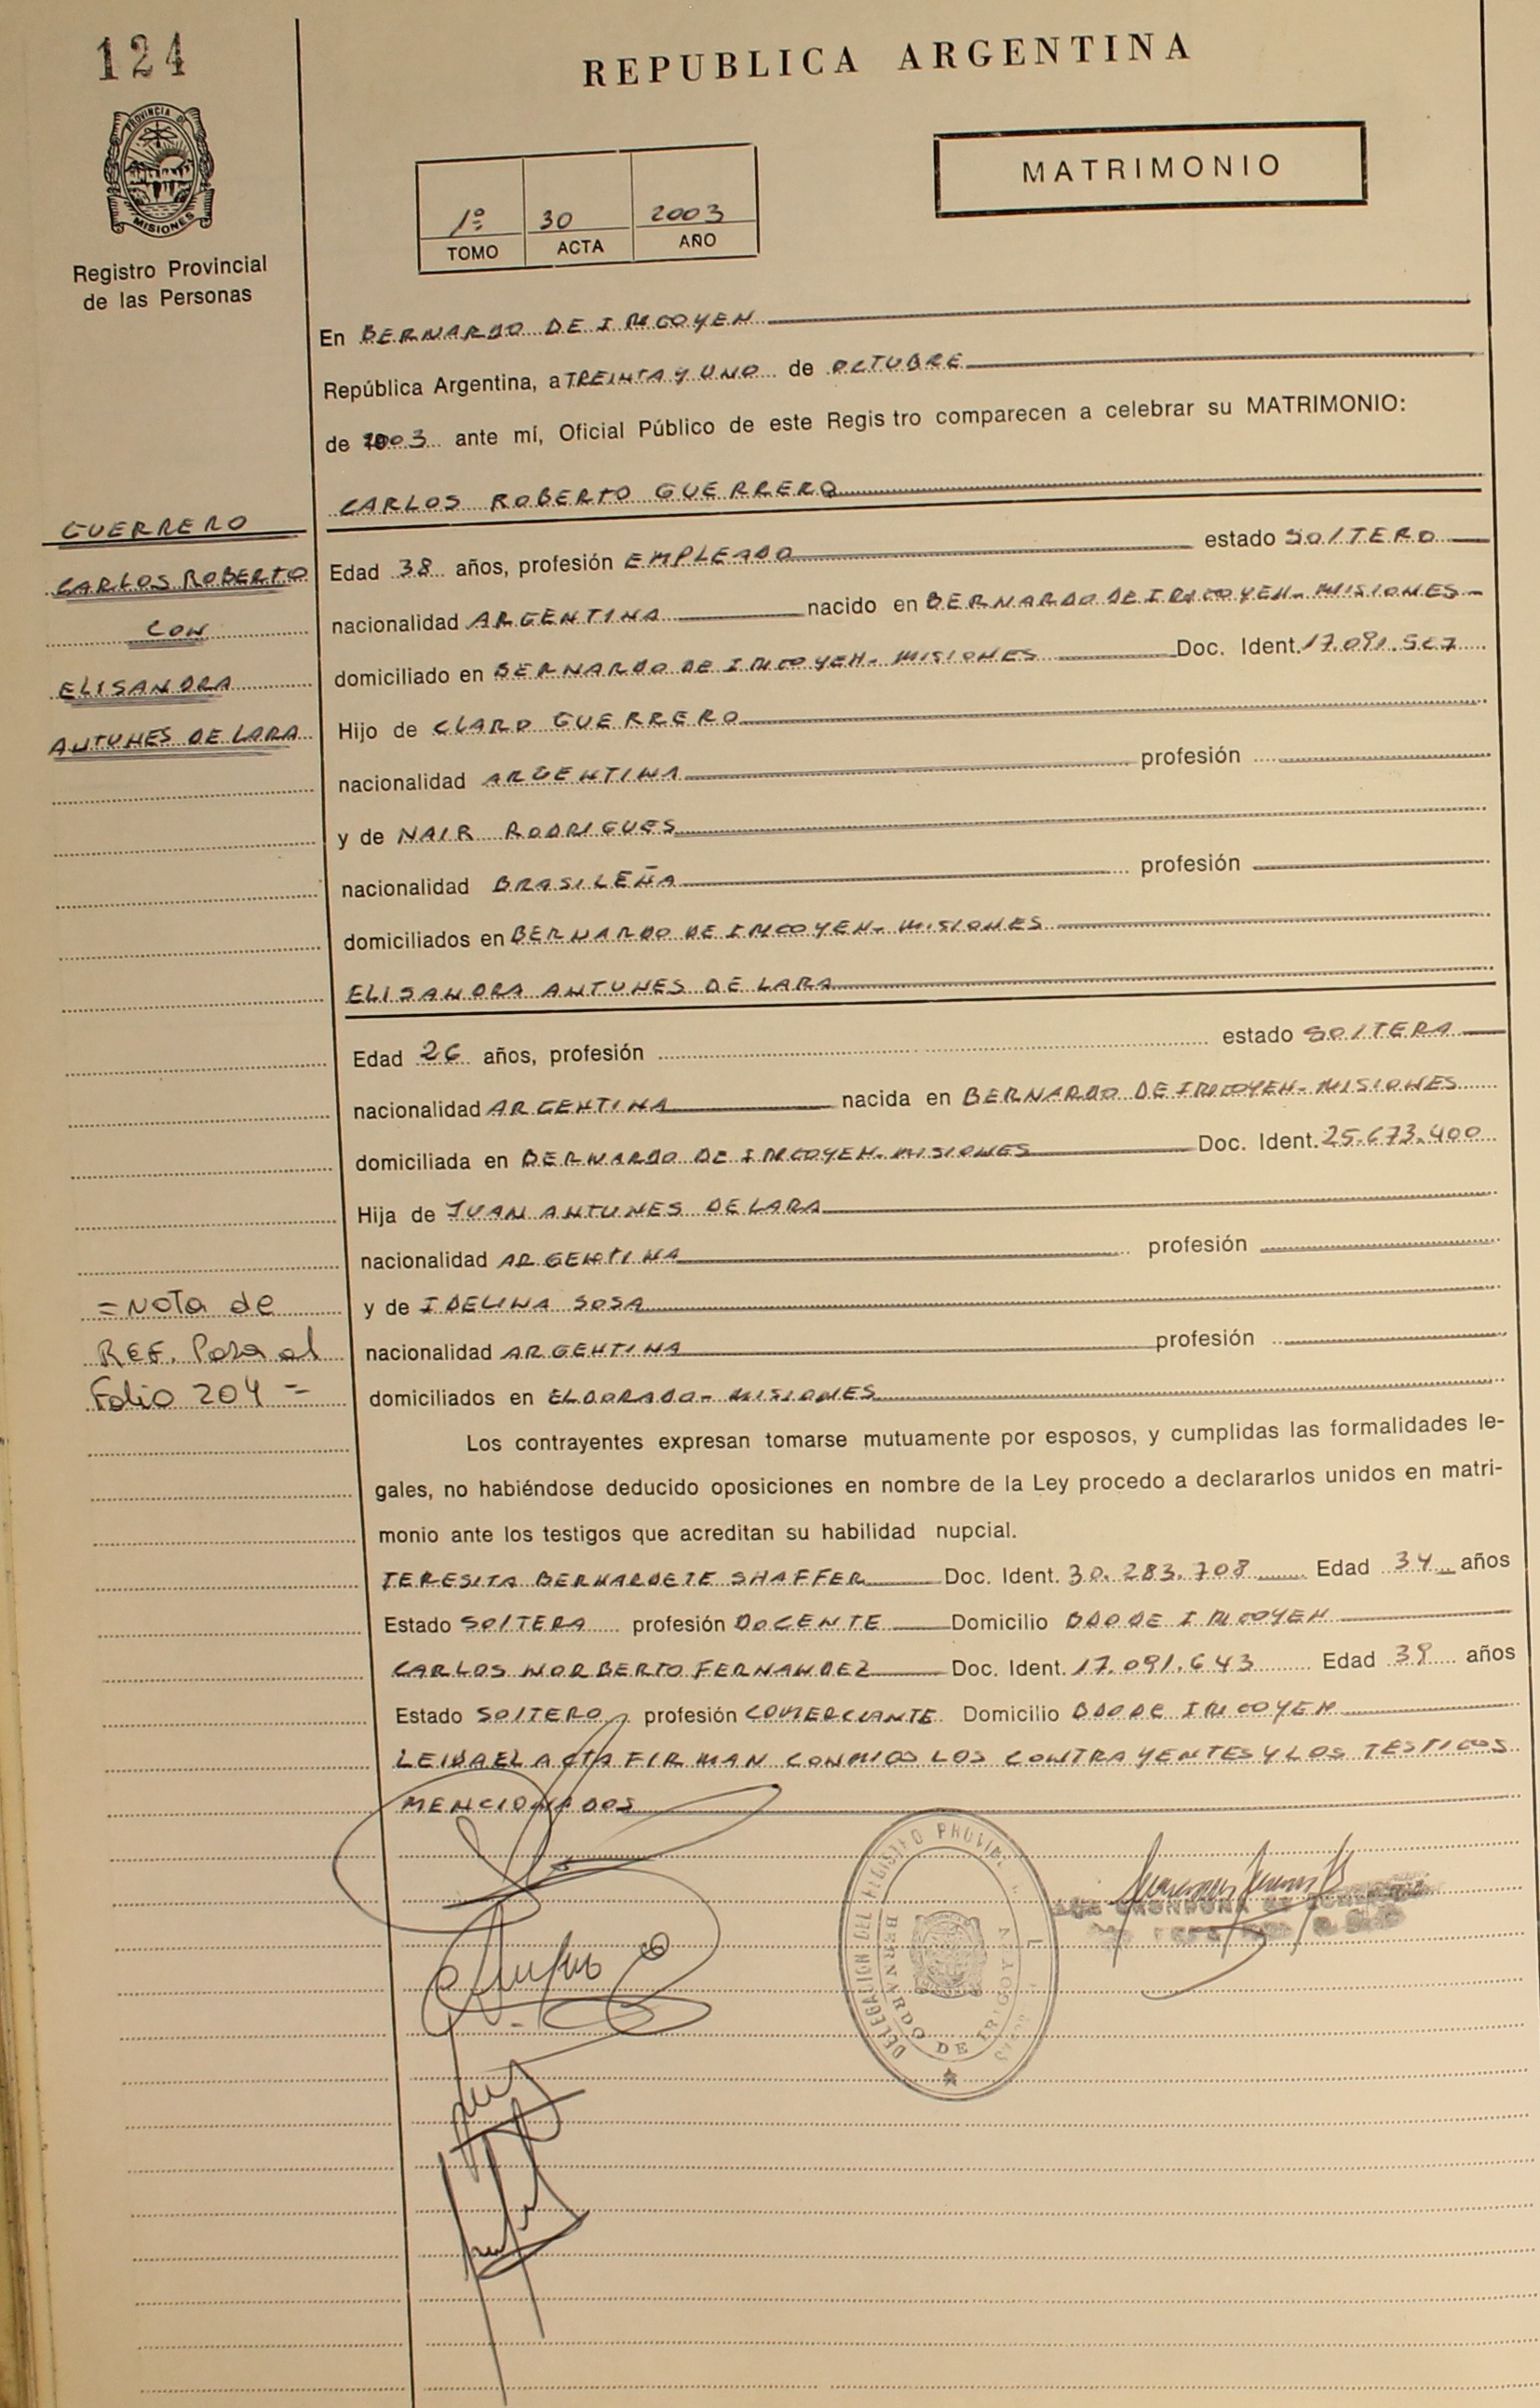 124
REPUBLICA ARGENTINA
PROVINCIA DE
MISIONES
MATRIMONIO
1º 30 2003
TOMO ACTA AÑO
Registro Provincial
de las Personas
En BERNARDO DE IRIGOYEN
República Argentina, a TREINTA Y UNO de OCTUBRE
de 2003 ante mí, Oficial Público de este Regis tro comparecen a celebrar su MATRIMONIO:
CARLOS ROBERTO GUERRERO
GUERRERO
CARLOS ROBERTO
CON
ELISANDRA
ANTUNES DE LARA
Edad 38 años, profesión EMPLEADO estado SOLTERO
nacionalidad ARGENTINA nacido en BERNARDO DE IRIGOYEN - MISIONES -
domiciliado en BERNARDO DE IRIGOYEN - MISIONES Doc. Ident. 17.091.567
Hijo de CLARO GUERRERO
nacionalidad ARGENTINA profesión
y de NAIR RODRIGUES
nacionalidad BRASILEÑA profesión
domiciliados en BERNARDO DE IRIGOYEN - MISIONES
ELISANDRA ANTUNES DE LARA
Edad 26 años, profesión estado SOLTERA
nacionalidad ARGENTINA nacida en BERNARDO DE IRIGOYEN - MISIONES
domiciliada en BERNARDO DE IRIGOYEN - MISIONES Doc. Ident. 25.673.400
Hija de JUAN ANTUNES DE LARA
nacionalidad ARGENTINA profesión
= Nota de
REF. Pasa al
Folio 204 =
y de IDELINA SOSA
nacionalidad ARGENTINA profesión
domiciliados en ELDORADO - MISIONES
Los contrayentes expresan tomarse mutuamente por esposos, y cumplidas las formalidades le-
gales, no habiéndose deducido oposiciones en nombre de la Ley procedo a declararlos unidos en matri-
monio ante los testigos que acreditan su habilidad nupcial.
TERESITA BERNARDETE SHAFFER Doc. Ident. 30.283.708 Edad 34 años
Estado SOLTERA profesión DOCENTE Domicilio BDO DE IRIGOYEN
CARLOS NORBERTO FERNANDEZ Doc. Ident. 17.091.643 Edad 39 años
Estado SOLTERO profesión COMERCIANTE Domicilio BDO DE IRIGOYEN
LEIDA EL ACTA FIRMAN CONMIGO LOS CONTRAYENTES Y LOS TESTIGOS
MENCIONADOS
DELEGACION DEL REGISTRO
BERNARDO DE IRIGOYEN